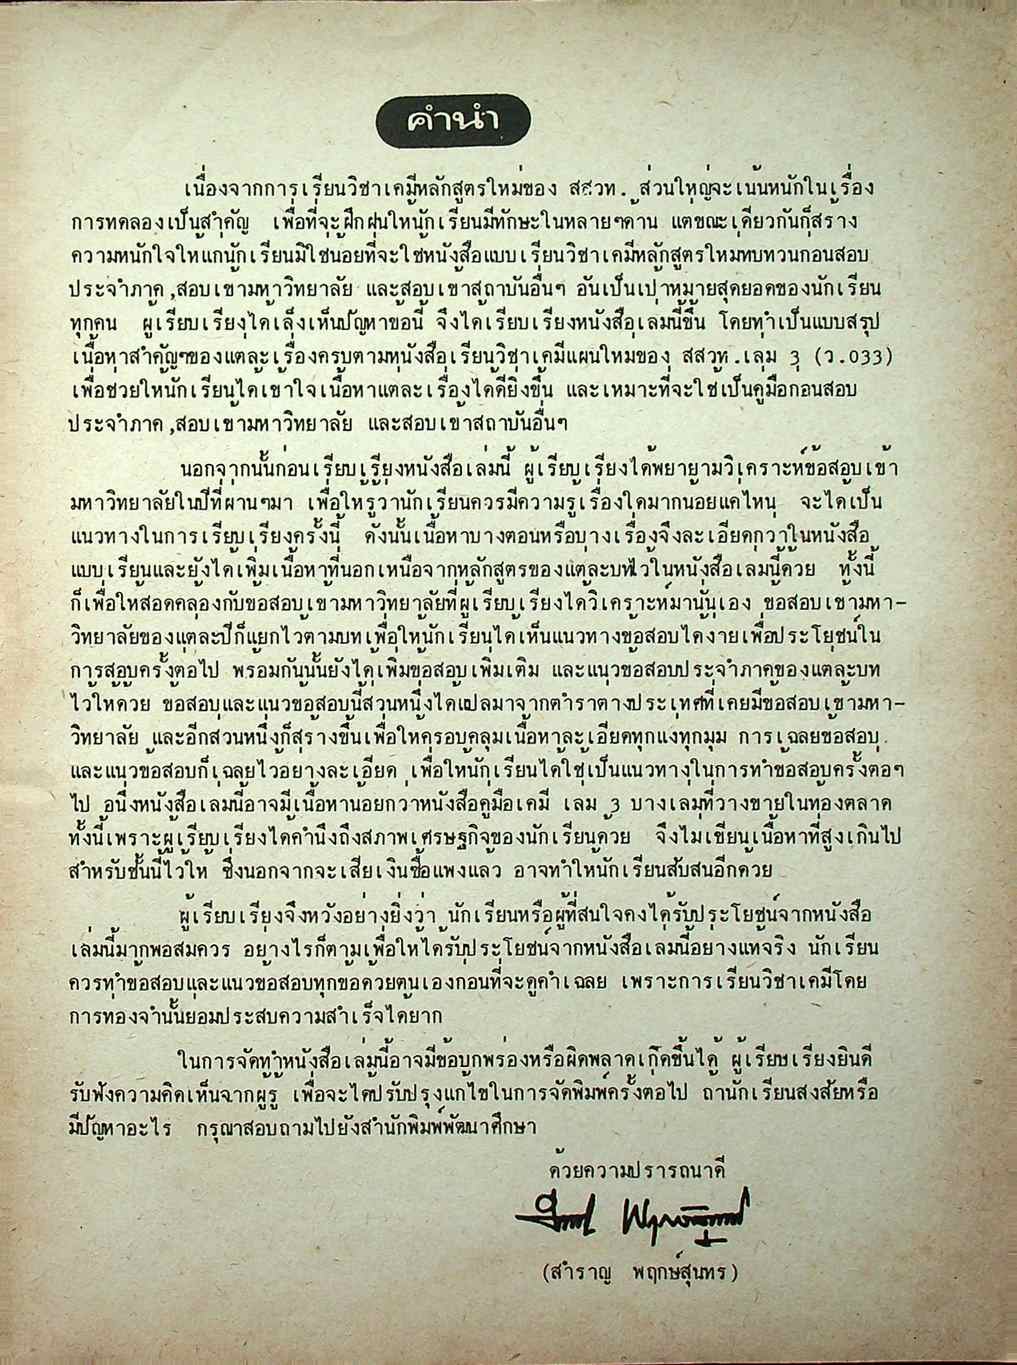 คำนำ
เนื่องจากการเรียนวิชาเคมีหลักสูตรใหม่ของ สสวท. ส่วนใหญ่จะเน้นหนักในเรื่อง
การทดลองเป็นสำคัญ เพื่อที่จะฝึกฝนให้นักเรียนมีทักษะในหลายๆด้าน แต่ขณะเดียวกันก็สร้าง
ความหนักใจให้แก่นักเรียนมิใช่น้อยที่จะใช้หนังสือแบบเรียนวิชาเคมีหลักสูตรใหม่ทบทวนก่อนสอบ
ประจำภาค,สอบเข้ามหาวิทยาลัย และสอบเข้าสถาบันอื่นๆ อันเป็นเป่าหมายสุดยอดของนักเรียน
ทุกคน ผู้เรียบเรียงได้เล็งเห็นปัญหาข้อนี้ จึงได้เรียบเรียงหนังสือเล่มนี้ขึ้น โดยทำเป็นแบบสรุป
เนื้อหาสำคัญๆของแต่ละเรื่องครบตามหนังสือเรียนวิชาเคมีแผนใหม่ของ สสวท.เล่ม 3 (ว.033)
เพื่อช่วยให้นักเรียนได้เข้าใจเนื้อหาแต่ละเรื่องได้ดียิ่งขึ้น และเหมาะที่จะใช้เป็นคู่มือก่อนสอบ
ประจำภาค,สอบเข้ามหาวิทยาลัย และสอบเข้าสถาบันอื่นๆ
นอกจากนั้นก่อนเรียบเรียงหนังสือเล่มนี้ ผู้เรียบเรียงได้พยายามวิเคราะห์ข้อสอบเข้า
มหาวิทยาลัยในปีที่ผ่านๆมา เพื่อให้รู้ว่านักเรียนควรมีความรู้เรื่องใดมากน้อยแค่ไหน จะได้เป็น
แนวทางในการเรียบเรียงครั้งนี้ ดังนั้นเนื้อหาบางตอนหรือบางเรื่องจึงละเอียดกว่าในหนังสือ
แบบเรียนและยังได้เพิ่มเนื้อหาที่นอกเหนือจากหลักสูตรของแต่ละบทไว้ในหนังสือเล่มนี้ด้วย ทั้งนี้
ก็เพื่อให้สอดคล้องกับข้อสอบเข้ามหาวิทยาลัยที่ผู้เรียบเรียงได้วิเคราะห์มานั่นเอง ข้อสอบเข้ามหา-
วิทยาลัยของแต่ละปีก็แยกไว้ตามบทเพื่อให้นักเรียนได้เห็นแนวทางข้อสอบได้ง่ายเพื่อประโยชน์ใน
การสอบครั้งต่อไป พร้อมกันนั้นยังได้เพิ่มข้อสอบเพิ่มเติม และแนวข้อสอบประจำภาคของแต่ละบท
ไว้ให้ด้วย ข้อสอบและแนวข้อสอบนี้ส่วนหนึ่งได้แปลมาจากตำราต่างประเทศที่เคยมีข้อสอบเข้ามหา-
วิทยาลัย และอีกส่วนหนึ่งก็สร้างขึ้นเพื่อให้ครอบคลุมเนื้อหาละเอียดทุกแง่ทุกมุม การเฉลยข้อสอบ
และแนวข้อสอบก็เฉลยไว้อย่างละเอียด เพื่อให้นักเรียนได้ใช้เป็นแนวทางในการทำข้อสอบครั้งต่อๆ
ไป อนึ่งหนังสือเล่มนี้อาจมีเนื้อหาน้อยกว่าหนังสือคู่มือเคมี เล่ม 3 บางเล่มที่วางขายในท้องตลาด
ทั้งนี้เพราะผู้เรียบเรียงได้คำนึงถึงสภาพเศรษฐกิจของนักเรียนด้วย จึงไม่เขียนเนื้อหาที่สูงเกินไป
สำหรับชั้นนี้ไว้ให้ ซึ่งนอกจากจะเสียเงินซื้อแพงแล้ว อาจทำให้นักเรียนสับสนอีกด้วย
ผู้เรียบเรียงจึงหวังอย่างยิ่งว่า นักเรียนหรือผู้ที่สนใจคงได้รับประโยชน์จากหนังสือ
เล่มนี้มากพอสมควร อย่างไรก็ตามเพื่อให้ได้รับประโยชน์จากหนังสือเล่มนี้อย่างแท้จริง นักเรียน
ควรทำข้อสอบและแนวข้อสอบทุกข้อด้วยตนเองก่อนที่จะดูคำเฉลย เพราะการเรียนวิชาเคมีโดย
การท่องจำนั้นย่อมประสบความสำเร็จได้ยาก
ในการจัดทำหนังสือเล่มนี้อาจมีข้อบกพร่องหรือผิดพลาดเกิดขึ้นได้ ผู้เรียบเรียงยินดี
รับฟังความคิดเห็นจากผู้รู้ เพื่อจะได้ปรับปรุงแก้ไขในการจัดพิมพ์ครั้งต่อไป ถ้านักเรียนสงสัยหรือ
มีปัญหาอะไร กรุณาสอบถามไปยังสำนักพิมพ์พัฒนาศึกษา
ด้วยความปรารถนาดี
(สำราญ พฤกษ์สุนทร)